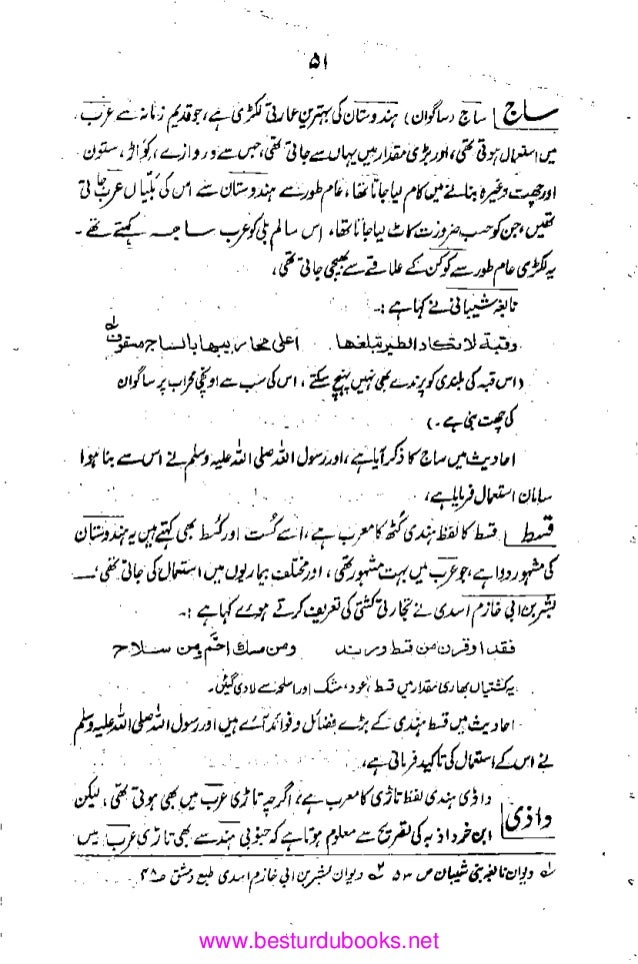 ۵۱
ساج | ساج (ساگوان) ہندوستان کی بہترین عمارتی لکڑی ہے، جو قدیم زمانہ سے عرب
میں استعمال ہوتی تھی، اور بڑی مقدار میں یہاں سے جاتی تھی، جس سے دروازے، کواڑ، ستون
اور چھت وغیرہ بنانے میں کام لیا جاتا تھا، عام طور سے ہندوستان سے اس کی بلیاں عرب جاتی
تھیں، جن کو حسب ضرورت کاٹ لیا جاتا تھا، اس سالم بلی کو عرب ساجہ کہتے تھے۔
یہ لکڑی عام طور سے کوکن کے علاقے سے بھیجی جاتی تھی،
نابغہ شیبانی نے کہا ہے :۔
وقبة لا تكاد الطير تبلغها اعلى محاريبها بالساج مسقوف ۱؎
(اس قبہ کی بلندی کو پرندے بھی نہیں پہنچ سکتے، اس کی سب سے اونچی محراب پر ساگوان
کی چھت بنی ہے۔)
احادیث میں ساج کا ذکر آیا ہے، اور رسول اللہ صلی اللہ علیہ وسلم نے اس سے بنا ہوا
سامان استعمال فرمایا ہے،
قسط | قسط کا لفظ ہندی کٹھ کا معرب ہے، اسے کست اور کسط بھی کہتے ہیں یہ ہندوستان
کی مشہور دوا ہے، جو عرب میں بہت مشہور تھی، اور مختلف بیماریوں میں استعمال کی جاتی تھی،
بشر بن ابی خازم اسدی نے تجارتی کشتی کی تعریف کرتے ہوئے کہا ہے :۔
فقد اوقرن من قسط ورند ومن مسك احم ومن سلاح
یہ کشتیاں بھاری مقدار میں قسط، عود، مشک اور اسلحہ سے لادی گئیں۔
احادیث میں قسط ہندی کے بڑے فضائل و فوائد آئے ہیں اور رسول اللہ صلی اللہ علیہ وسلم
نے اس کے استعمال کی تاکید فرمائی ہے،
داذی | داذی ہندی لفظ تاڑی کا معرب ہے، اگرچہ تاڑی عرب میں بھی ہوتی تھی، لیکن
ابن خرداذبہ کی تصریح سے معلوم ہوتا ہے کہ جنوبی ہند سے بھی تاڑی عرب میں
۱؎ دیوان نابغہ بنی شیبان ص ۵۳ ۲؎ دیوان بشر بن ابی خازم اسدی طبع دمشق ص ۴۸۔
www.besturdubooks.net